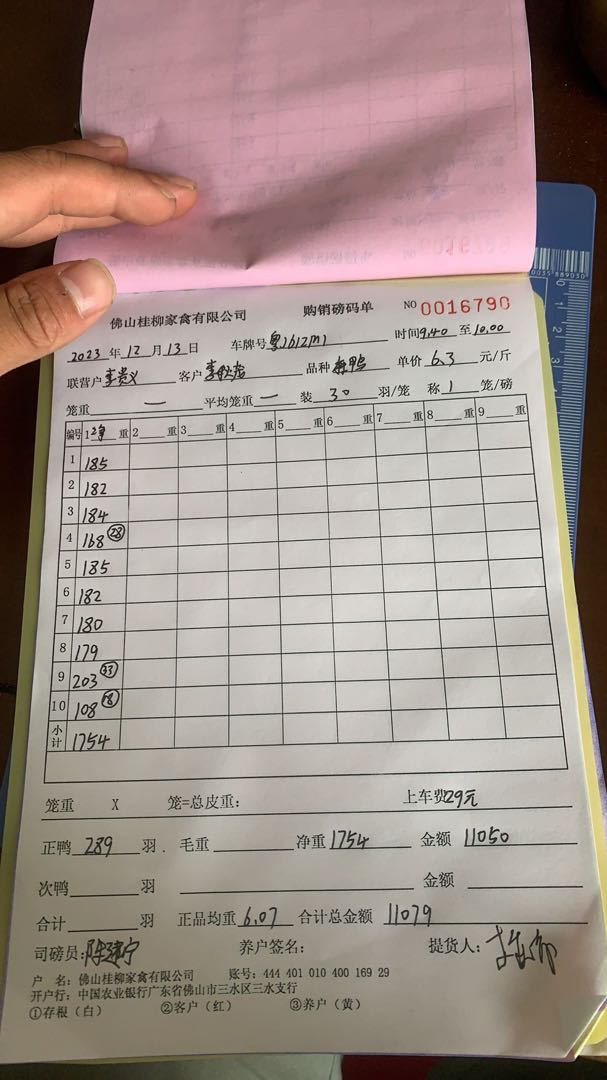 佛山桂柳家禽有限公司 购销磅码单 NO 0016790
2023年12月13日 车牌号 时间9.40至10.00
联营户 李贵义 客户 品种 单价6.3元/斤
笼重 — 平均笼重 — 装30羽/笼 称1笼/磅
编号 1净重 2重 3重 4重 5重 6重 7重 8重 9重
1 185
2 182
3 184
4 168 28
5 185
6 182
7 180
8 179
9 203 33
10 108 18
小计 1754
笼重 X 笼=总皮重: 上车费29元
正鸭289羽. 毛重 净重1754 金额11050
次鸭 羽 金额
合计 羽 正品均重6.07 合计总金额11079
司磅员: 陈建宁 养户签名: 提货人:
户 名: 佛山桂柳家禽有限公司 账号: 444 401 010 400 169 29
开户行: 中国农业银行广东省佛山市三水区三水支行
①存根（白） ②客户（红） ③养户（黄）
0 1 2 3